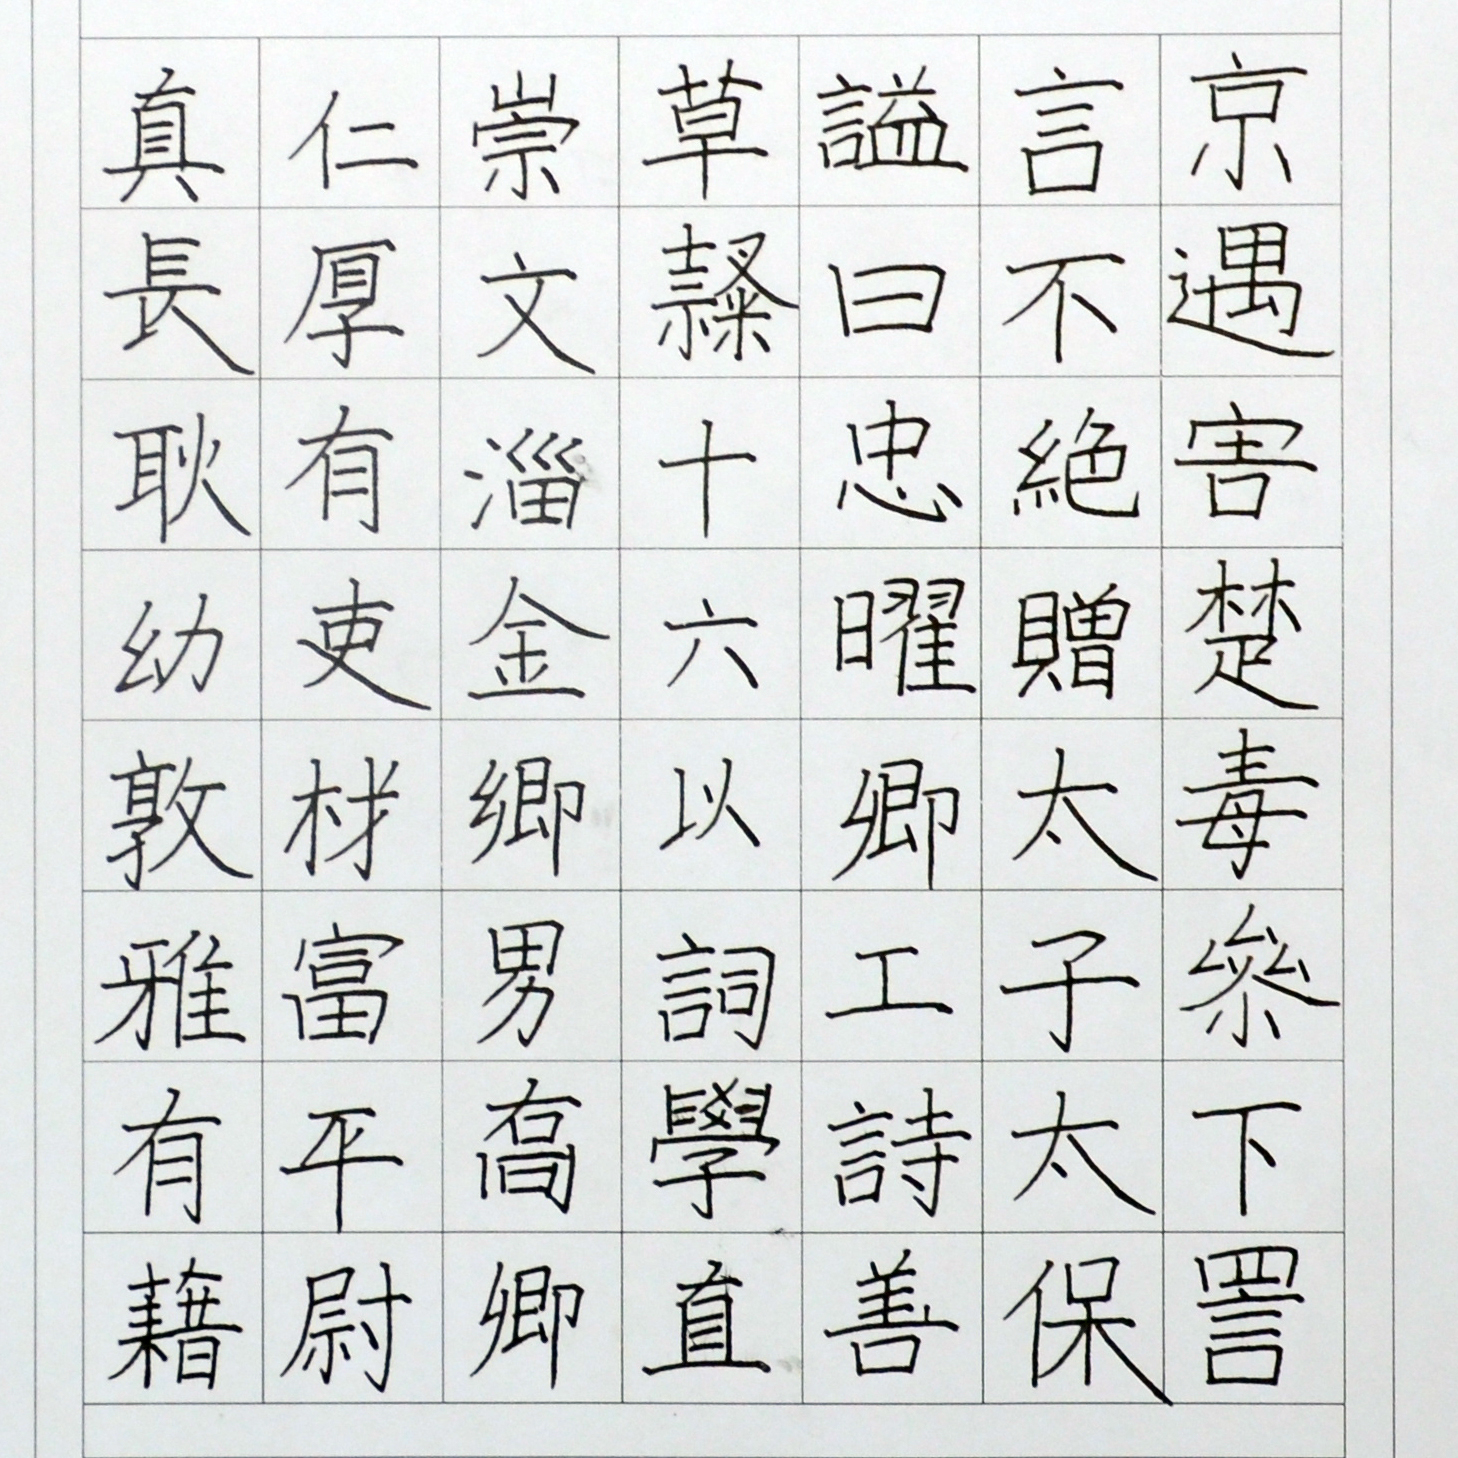 京遇害楚毒參下詈
言不絕贈太子太保
謚曰忠曜卿工詩善
草隸十六以詞學直
崇文淄金卿男卨卿
仁厚有吏材富平尉
真長耿幼敦雅有藉